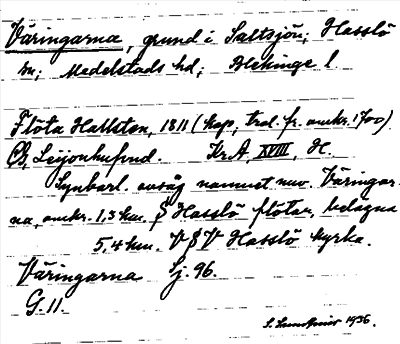 Väringarna, grund i Saltsjön, Hasslö
sn; Medelstads hd; Blekinge l
Flöta Hallsten, 1811 (kop., trol. fr. omkr. 1700)
Ch. Leijonhufvud. Kr. A. XVIII, H.
Synbarl. avsåg namnet nuv. Väringar-
na, omkr. 1,3 km. S Hasslö flötar, belägna
5,4 km. V S V Hasslö kyrka.
Väringarna Sj. 96.
G. 11.
1936.